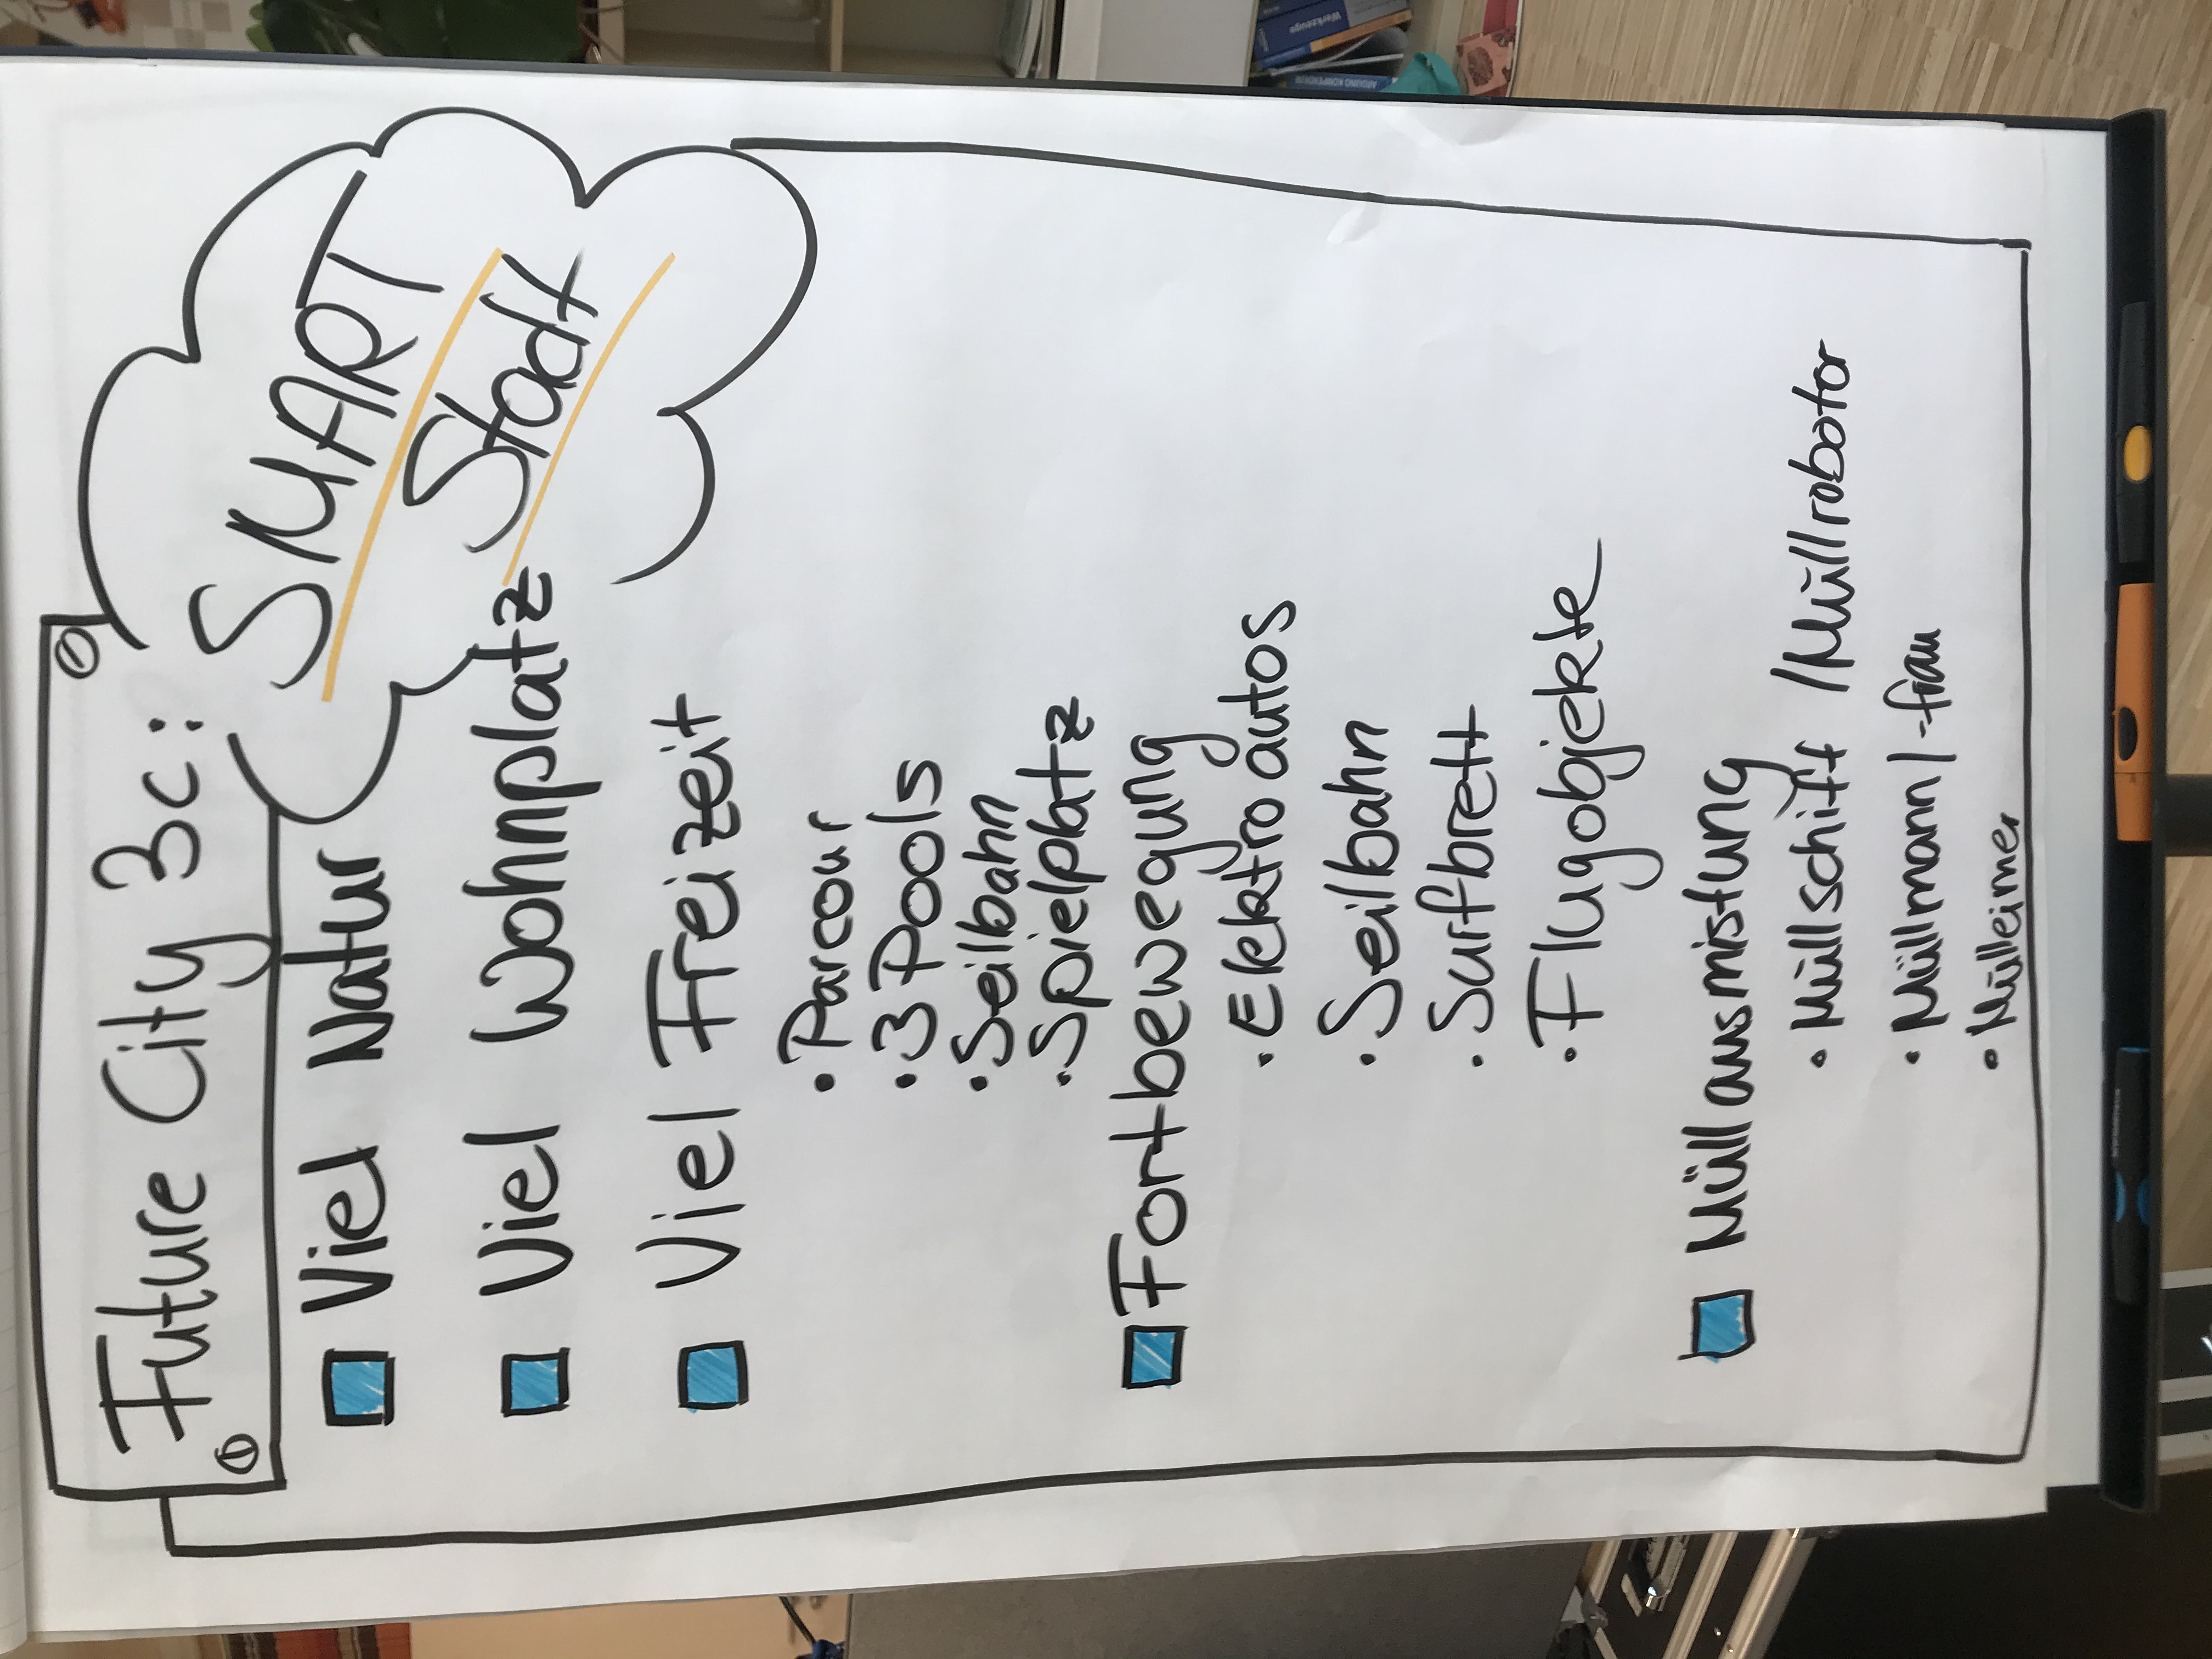 Future City 3c:
SMART
Stadt
Viel Natur
Viel Wohnplatz
Viel Freizeit
• Parcour
• 3 Pools
• Seilbahn
• Spielplatz
Fortbewegung
• Elektroautos
• Seilbahn
• Surfbrett
• Flugobjekte
Müllausmistung
• Müllschiff /Müllrobotor
• Müllmann/-frau
• Mülleimer
Werkzeuge